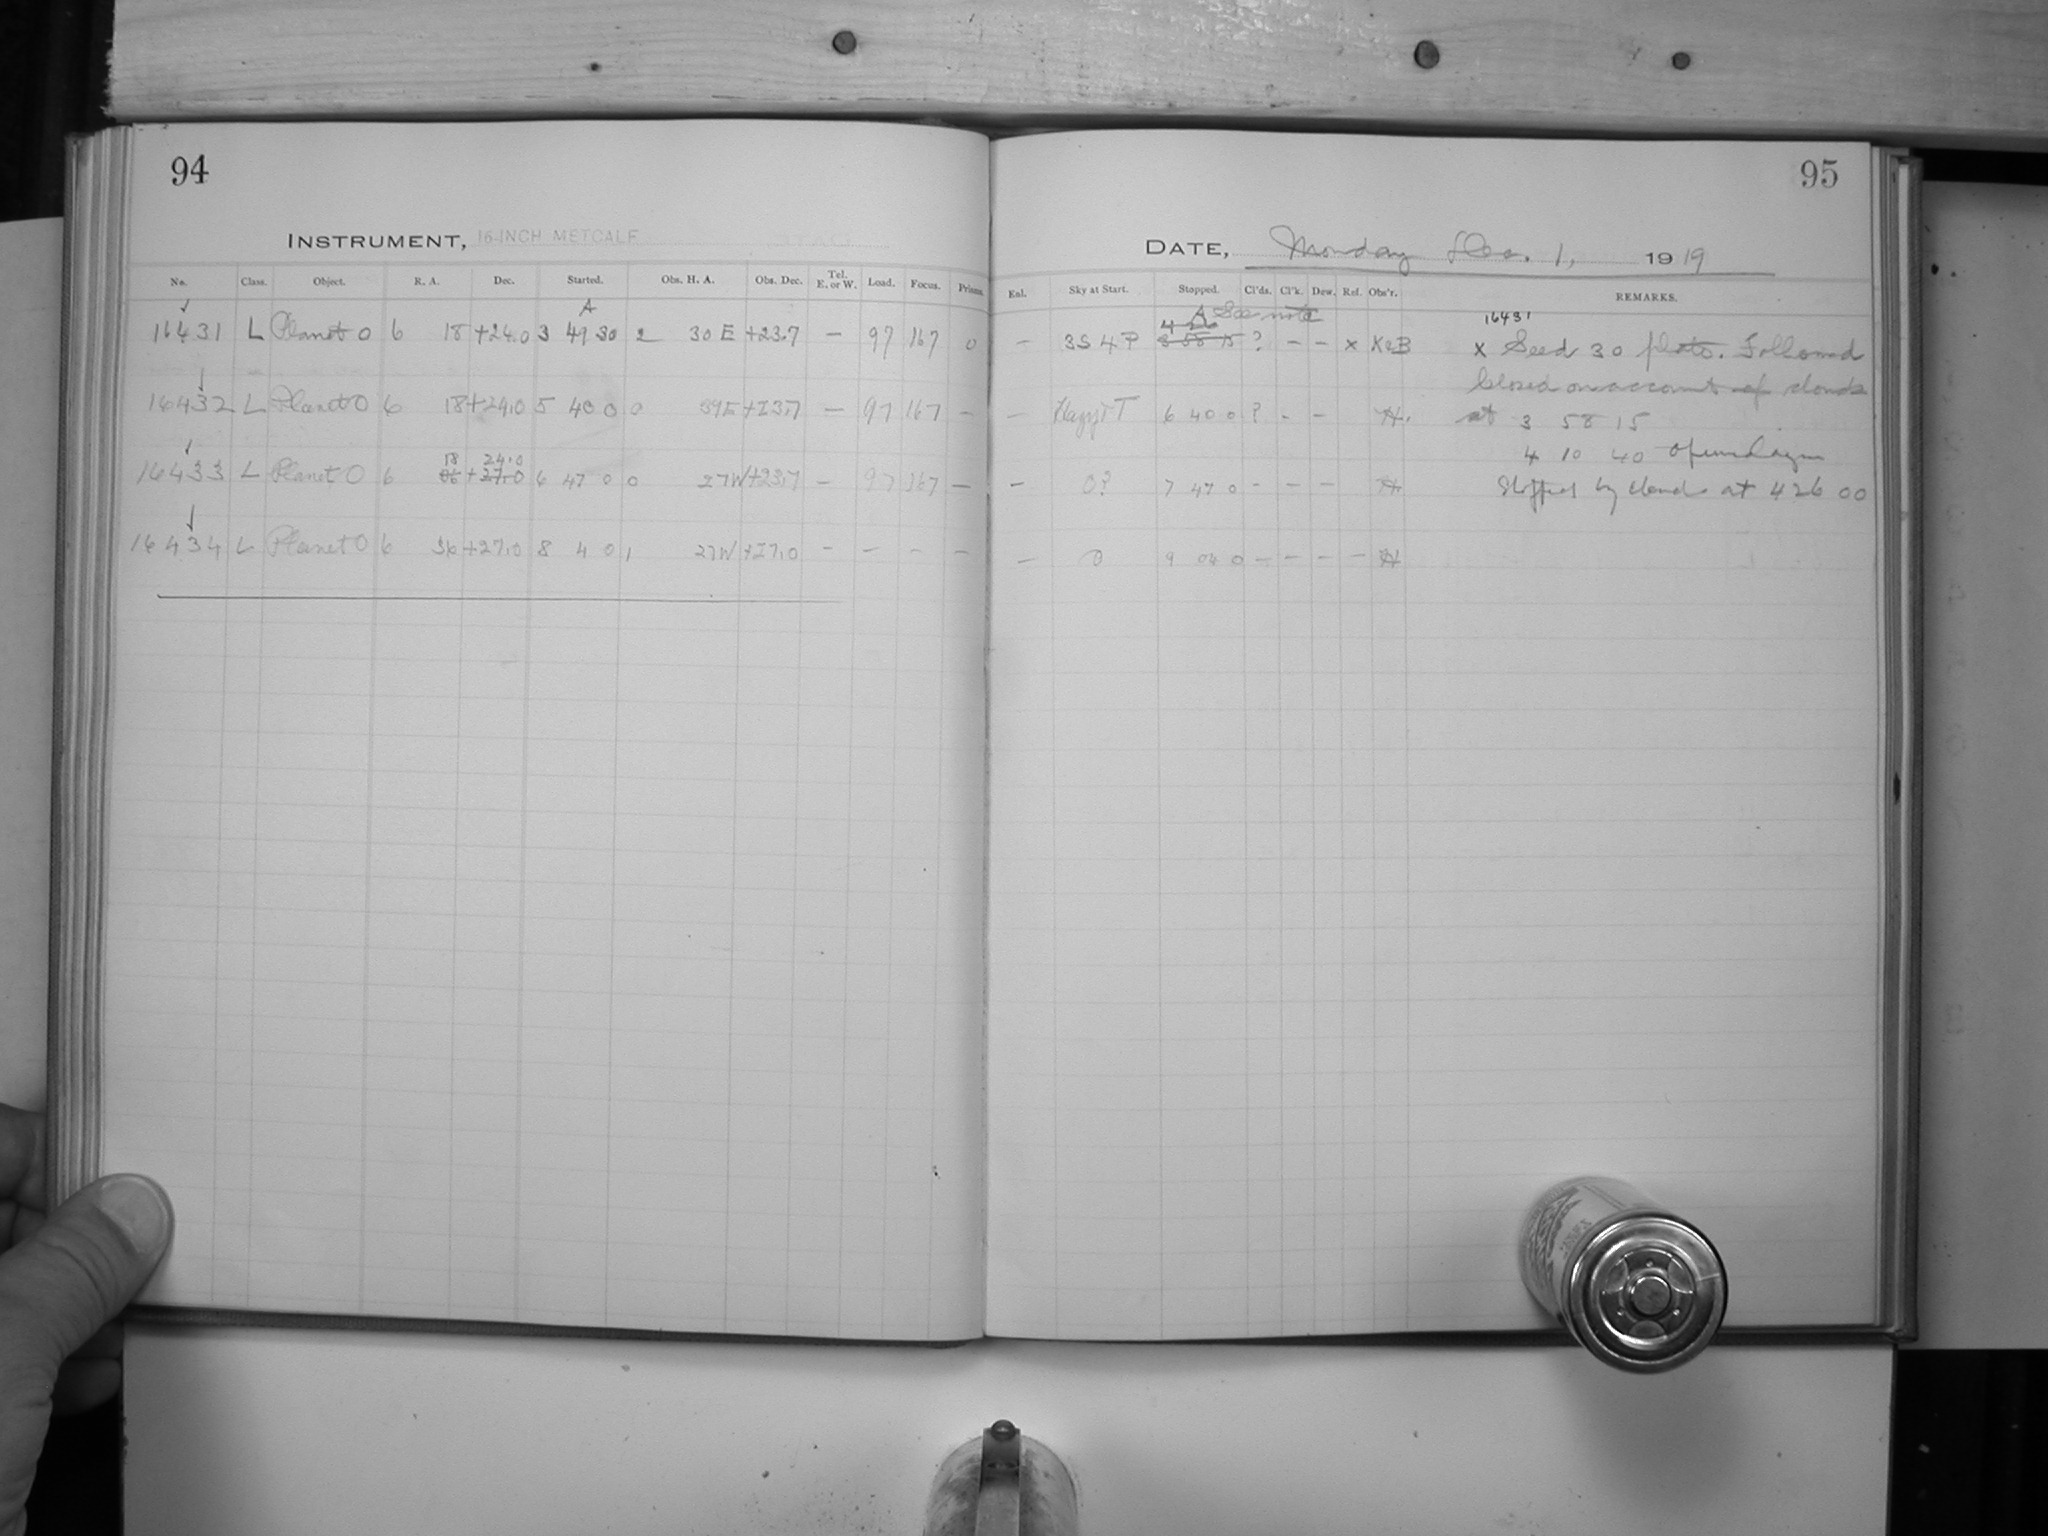 94
95
INSTRUMENT, 16-INCH METCALF
DATE, Monday Dec. 1, 1919
No. Class. Object. R. A. Dec. Started. Obs. H. A. Obs. Dec. Tel. E. or W. Load. Focus. Prisms.
Exl. Sky at Start. Stopped. Cl'ds. Cl'k. Dew. Ref. Obs'r. REMARKS.
A
A See note
4 26
16431 L Planet O 6 18 +24.0 3 49 30 2 30 E +23.7 — 97 167 0
— 3S 4 P 3 58 15 ? — — x K&B
16431
x Seed 30 plate. Followed
closed on account of clouds
16432 L Planet O 6 18 +24.0 5 40 0 0 39E +23.7 — 97 167 —
— 6 40 0 ? - – H.
at 3 58 15
4 10 40 opened again
18 24.0
16433 L Planet O 6 36 +27.0 6 47 0 0 27W +23.7 — 97 167 —
— 0? 7 47 0 - — — H
Stopped by clouds at 4 26 00
16434 L Planet O 6 36 +27.0 8 4 0 1 27W +27.0 – — – –
— 0 9 04 0 — — — – H